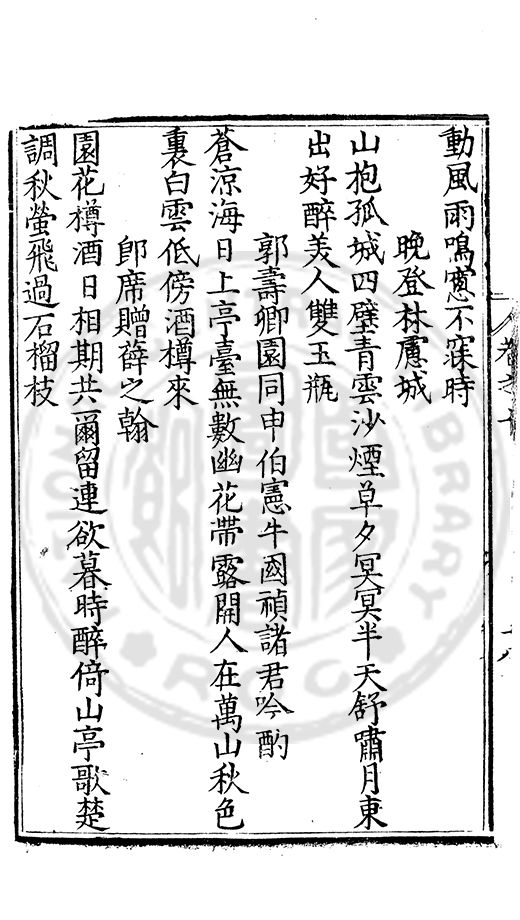 動風雨鳴窻不寐時
晚登林慮城
山抱孤城四壁青雲沙煙草夕冥冥半天舒嘯月東
出好醉美人雙玉瓶
郭壽卿園同申伯憲牛國禎諸君吟酌
蒼涼海日上亭臺無數幽花帶露開人在萬山秋色
裏白雲低傍酒樽來
卽席贈薛之翰
園花樽酒日相期共爾留連欲暮時醉倚山亭歌楚
調秋螢飛過石榴枝